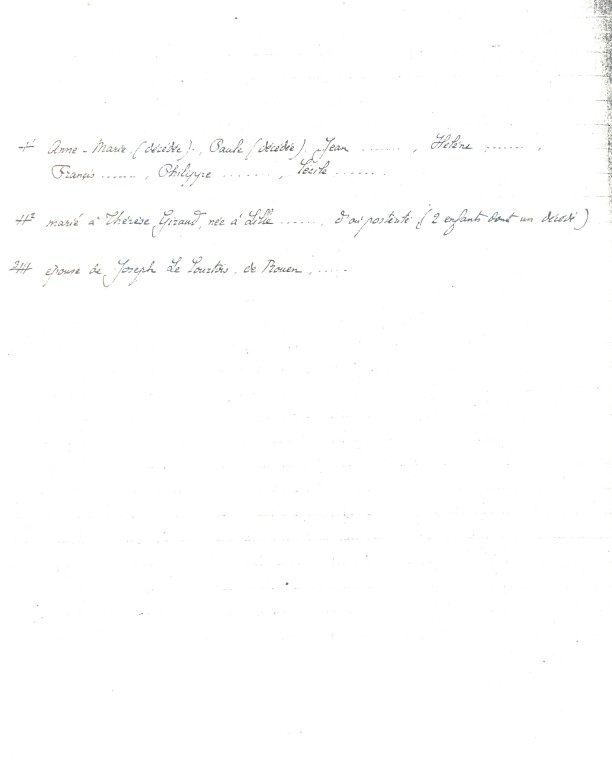 Anne-Marie (décédée), Paule (décédée), Jean ......., Hélène .......,
François ......., Philippe ......., Cécile .......
marié à Thérèse Giraud, née à Lille ......., d'où postérité (2 enfants dont un décédé)
épouse de Joseph Le Courtois, de Rouen, .....